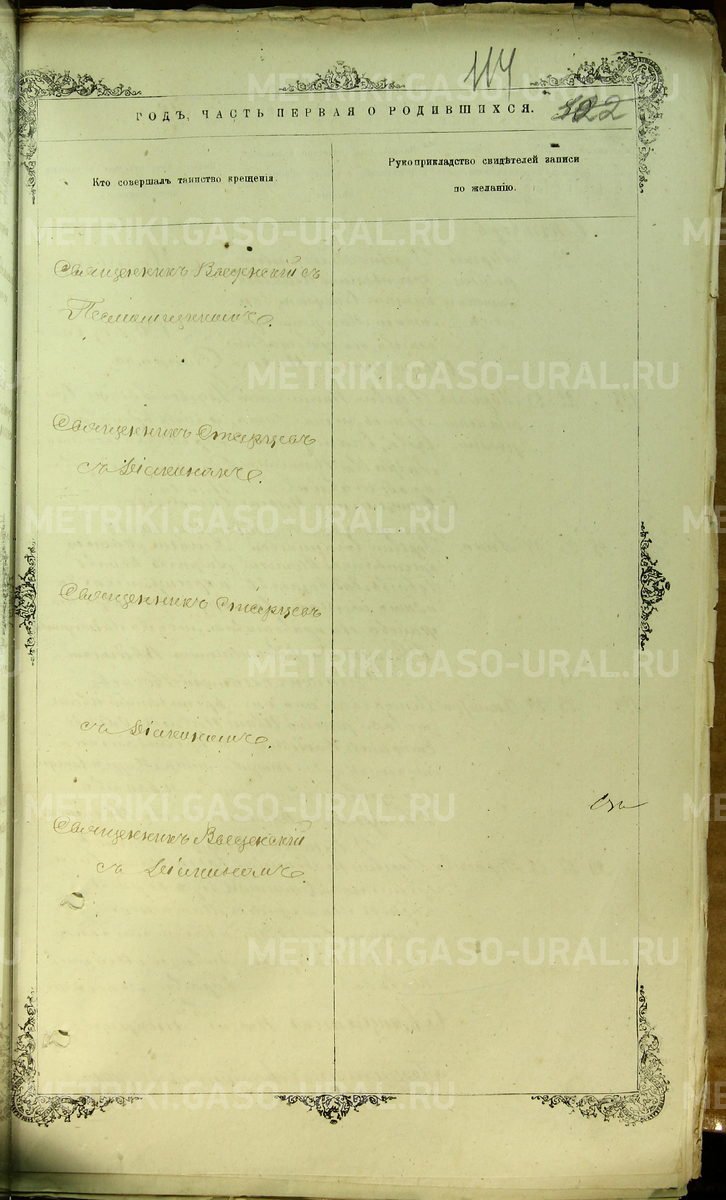 114
ГОДЪ, ЧАСТЬ ПЕРВАЯ О РОДИВШИХСЯ.
322
Кто совершалъ таинство крещенія.
Рукоприкладство свидѣтелей записи
по желанію.
Священникъ съ
Псаломщикомъ.
Священникъ Старцевъ
съ Діакономъ.
Священникъ Старцевъ
съ Діакономъ.
Священникъ
съ Діакономъ.
METRIKI.GASO-URAL.RU